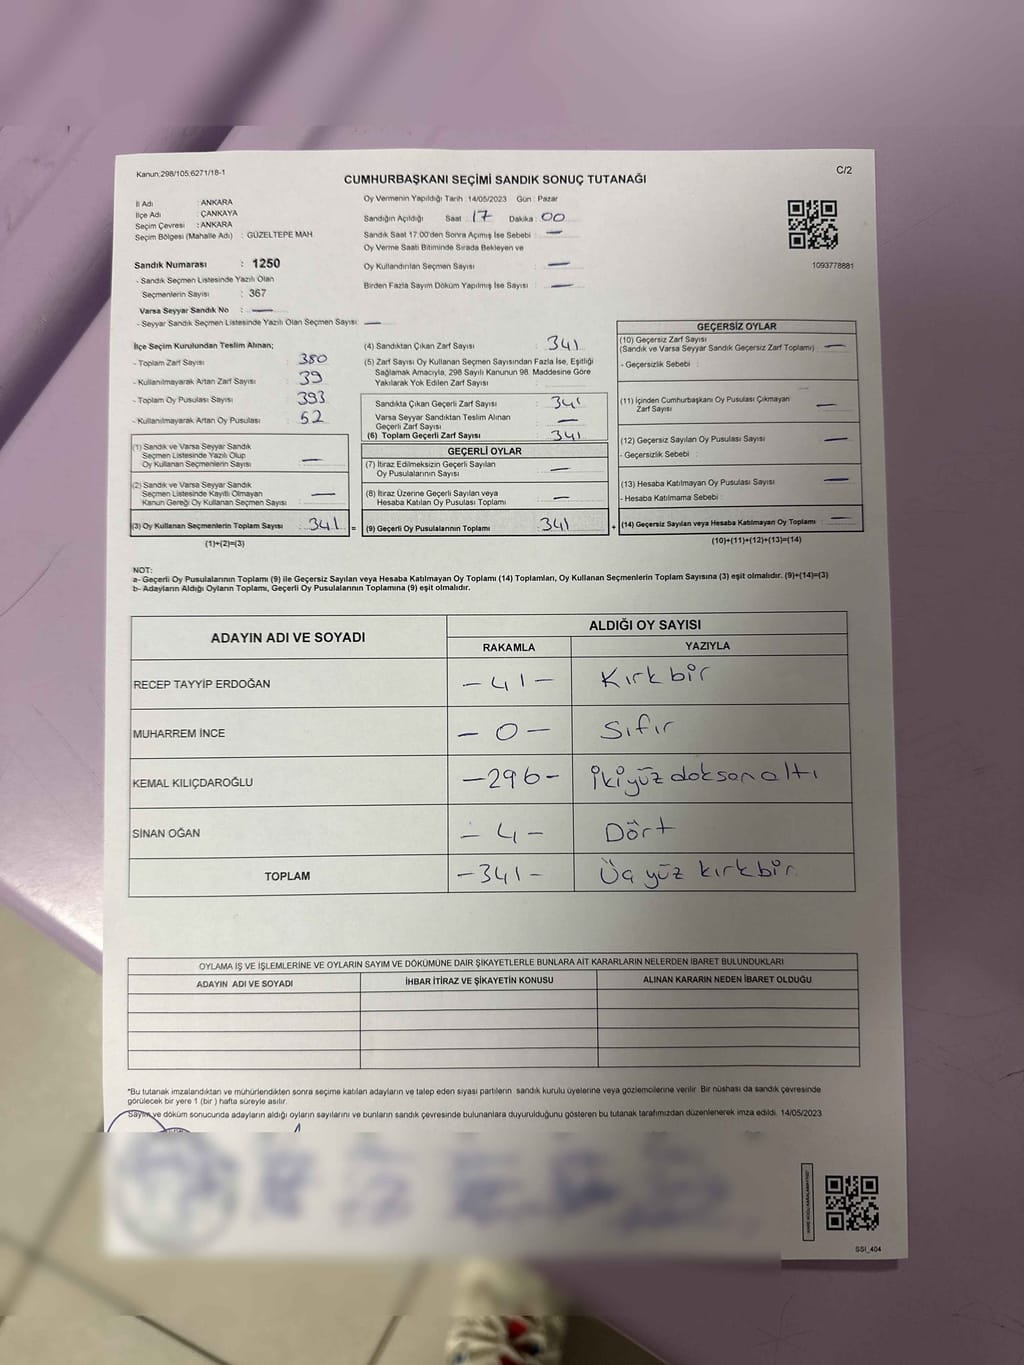 Kanun,298/105,6271/18-1
C/2
CUMHURBAŞKANI SEÇİMİ SANDIK SONUÇ TUTANAĞI
İl Adı : ANKARA
İlçe Adı : ÇANKAYA
Seçim Çevresi : ANKARA
Seçim Bölgesi (Mahalle Adı) : GÜZELTEPE MAH
Sandık Numarası : 1250
- Sandık Seçmen Listesinde Yazılı Olan
Seçmenlerin Sayısı : 367
Varsa Seyyar Sandık No : —
- Seyyar Sandık Seçmen Listesinde Yazılı Olan Seçmen Sayısı: —
Oy Vermenin Yapıldığı Tarih :14/05/2023 Gün : Pazar
Sandığın Açıldığı Saat : 17 Dakika : 00
Sandık Saat 17:00'den Sonra Açımış İse Sebebi : —
Oy Verme Saati Bitiminde Sırada Bekleyen ve
Oy Kullandırılan Seçmen Sayısı : —
Birden Fazla Sayım Döküm Yapılmış İse Sayısı : —
1093778881
İlçe Seçim Kurulundan Teslim Alınan;
- Toplam Zarf Sayısı : 380
- Kullanılmayarak Artan Zarf Sayısı : 39
- Toplam Oy Pusulası Sayısı : 393
- Kullanılmayarak Artan Oy Pusulası : 52
(1) Sandık ve Varsa Seyyar Sandık
Seçmen Listesinde Yazılı Olup
Oy Kullanan Seçmenlerin Sayısı : —
(2) Sandık ve Varsa Seyyar Sandık
Seçmen Listesinde Kayıtlı Olmayan
Kanun Gereği Oy Kullanan Seçmen Sayısı : —
(3) Oy Kullanan Seçmenlerin Toplam Sayısı : 341 =
(1)+(2)=(3)
(4) Sandıktan Çıkan Zarf Sayısı : 341
(5) Zarf Sayısı Oy Kullanan Seçmen Sayısından Fazla İse, Eşitliği
Sağlamak Amacıyla, 298 Sayılı Kanunun 98. Maddesine Göre
Yakılarak Yok Edilen Zarf Sayısı :
Sandıkta Çıkan Geçerli Zarf Sayısı : 341
Varsa Seyyar Sandıktan Teslim Alınan
Geçerli Zarf Sayısı : —
(6) Toplam Geçerli Zarf Sayısı : 341
GEÇERLİ OYLAR
(7) İtiraz Edilmeksizin Geçerli Sayılan
Oy Pusulalarının Sayısı : —
(8) İtiraz Üzerine Geçerli Sayılan veya
Hesaba Katılan Oy Pusulası Toplamı : —
(9) Geçerli Oy Pusulalarının Toplamı : 341 +
GEÇERSİZ OYLAR
(10) Geçersiz Zarf Sayısı
(Sandık ve Varsa Seyyar Sandık Geçersiz Zarf Toplamı) : —
- Geçersizlik Sebebi :
(11) İçinden Cumhurbaşkanı Oy Pusulası Çıkmayan
Zarf Sayısı : —
(12) Geçersiz Sayılan Oy Pusulası Sayısı : —
- Geçersizlik Sebebi :
(13) Hesaba Katılmayan Oy Pusulası Sayısı : —
- Hesaba Katılmama Sebebi :
(14) Geçersiz Sayılan veya Hesaba Katılmayan Oy Toplamı : —
(10)+(11)+(12)+(13)=(14)
NOT:
a- Geçerli Oy Pusulalarının Toplamı (9) ile Geçersiz Sayılan veya Hesaba Katılmayan Oy Toplamı (14) Toplamları, Oy Kullanan Seçmenlerin Toplam Sayısına (3) eşit olmalıdır. (9)+(14)=(3)
b- Adayların Aldığı Oyların Toplamı, Geçerli Oy Pusulalarının Toplamına (9) eşit olmalıdır.
ADAYIN ADI VE SOYADI
ALDIĞI OY SAYISI
RAKAMLA YAZIYLA
RECEP TAYYİP ERDOĞAN -41- Kırkbir
MUHARREM İNCE -0- Sıfır
KEMAL KILIÇDAROĞLU -296- ikiyüz doksan altı
SİNAN OĞAN -4- Dört
TOPLAM -341- Üç yüz kırkbir
OYLAMA İŞ VE İŞLEMLERİNE VE OYLARIN SAYIM VE DÖKÜMÜNE DAİR ŞİKAYETLERLE BUNLARA AİT KARARLARIN NELERDEN İBARET BULUNDUKLARI
ADAYIN ADI VE SOYADI İHBAR İTİRAZ VE ŞİKAYETİN KONUSU ALINAN KARARIN NEDEN İBARET OLDUĞU
*Bu tutanak imzalandıktan ve mühürlendikten sonra seçime katılan adayların ve talep eden siyasi partilerin sandık kurulu üyelerine veya gözlemcilerine verilir. Bir nüshası da sandık çevresinde
görülecek bir yere 1 (bir ) hafta süreyle asılır.
Sayım ve döküm sonucunda adayların aldığı oyların sayılarını ve bunların sandık çevresinde bulunanlara duyurulduğunu gösteren bu tutanak tarafımızdan düzenlenerek imza edildi. 14/05/2023
SSI_404